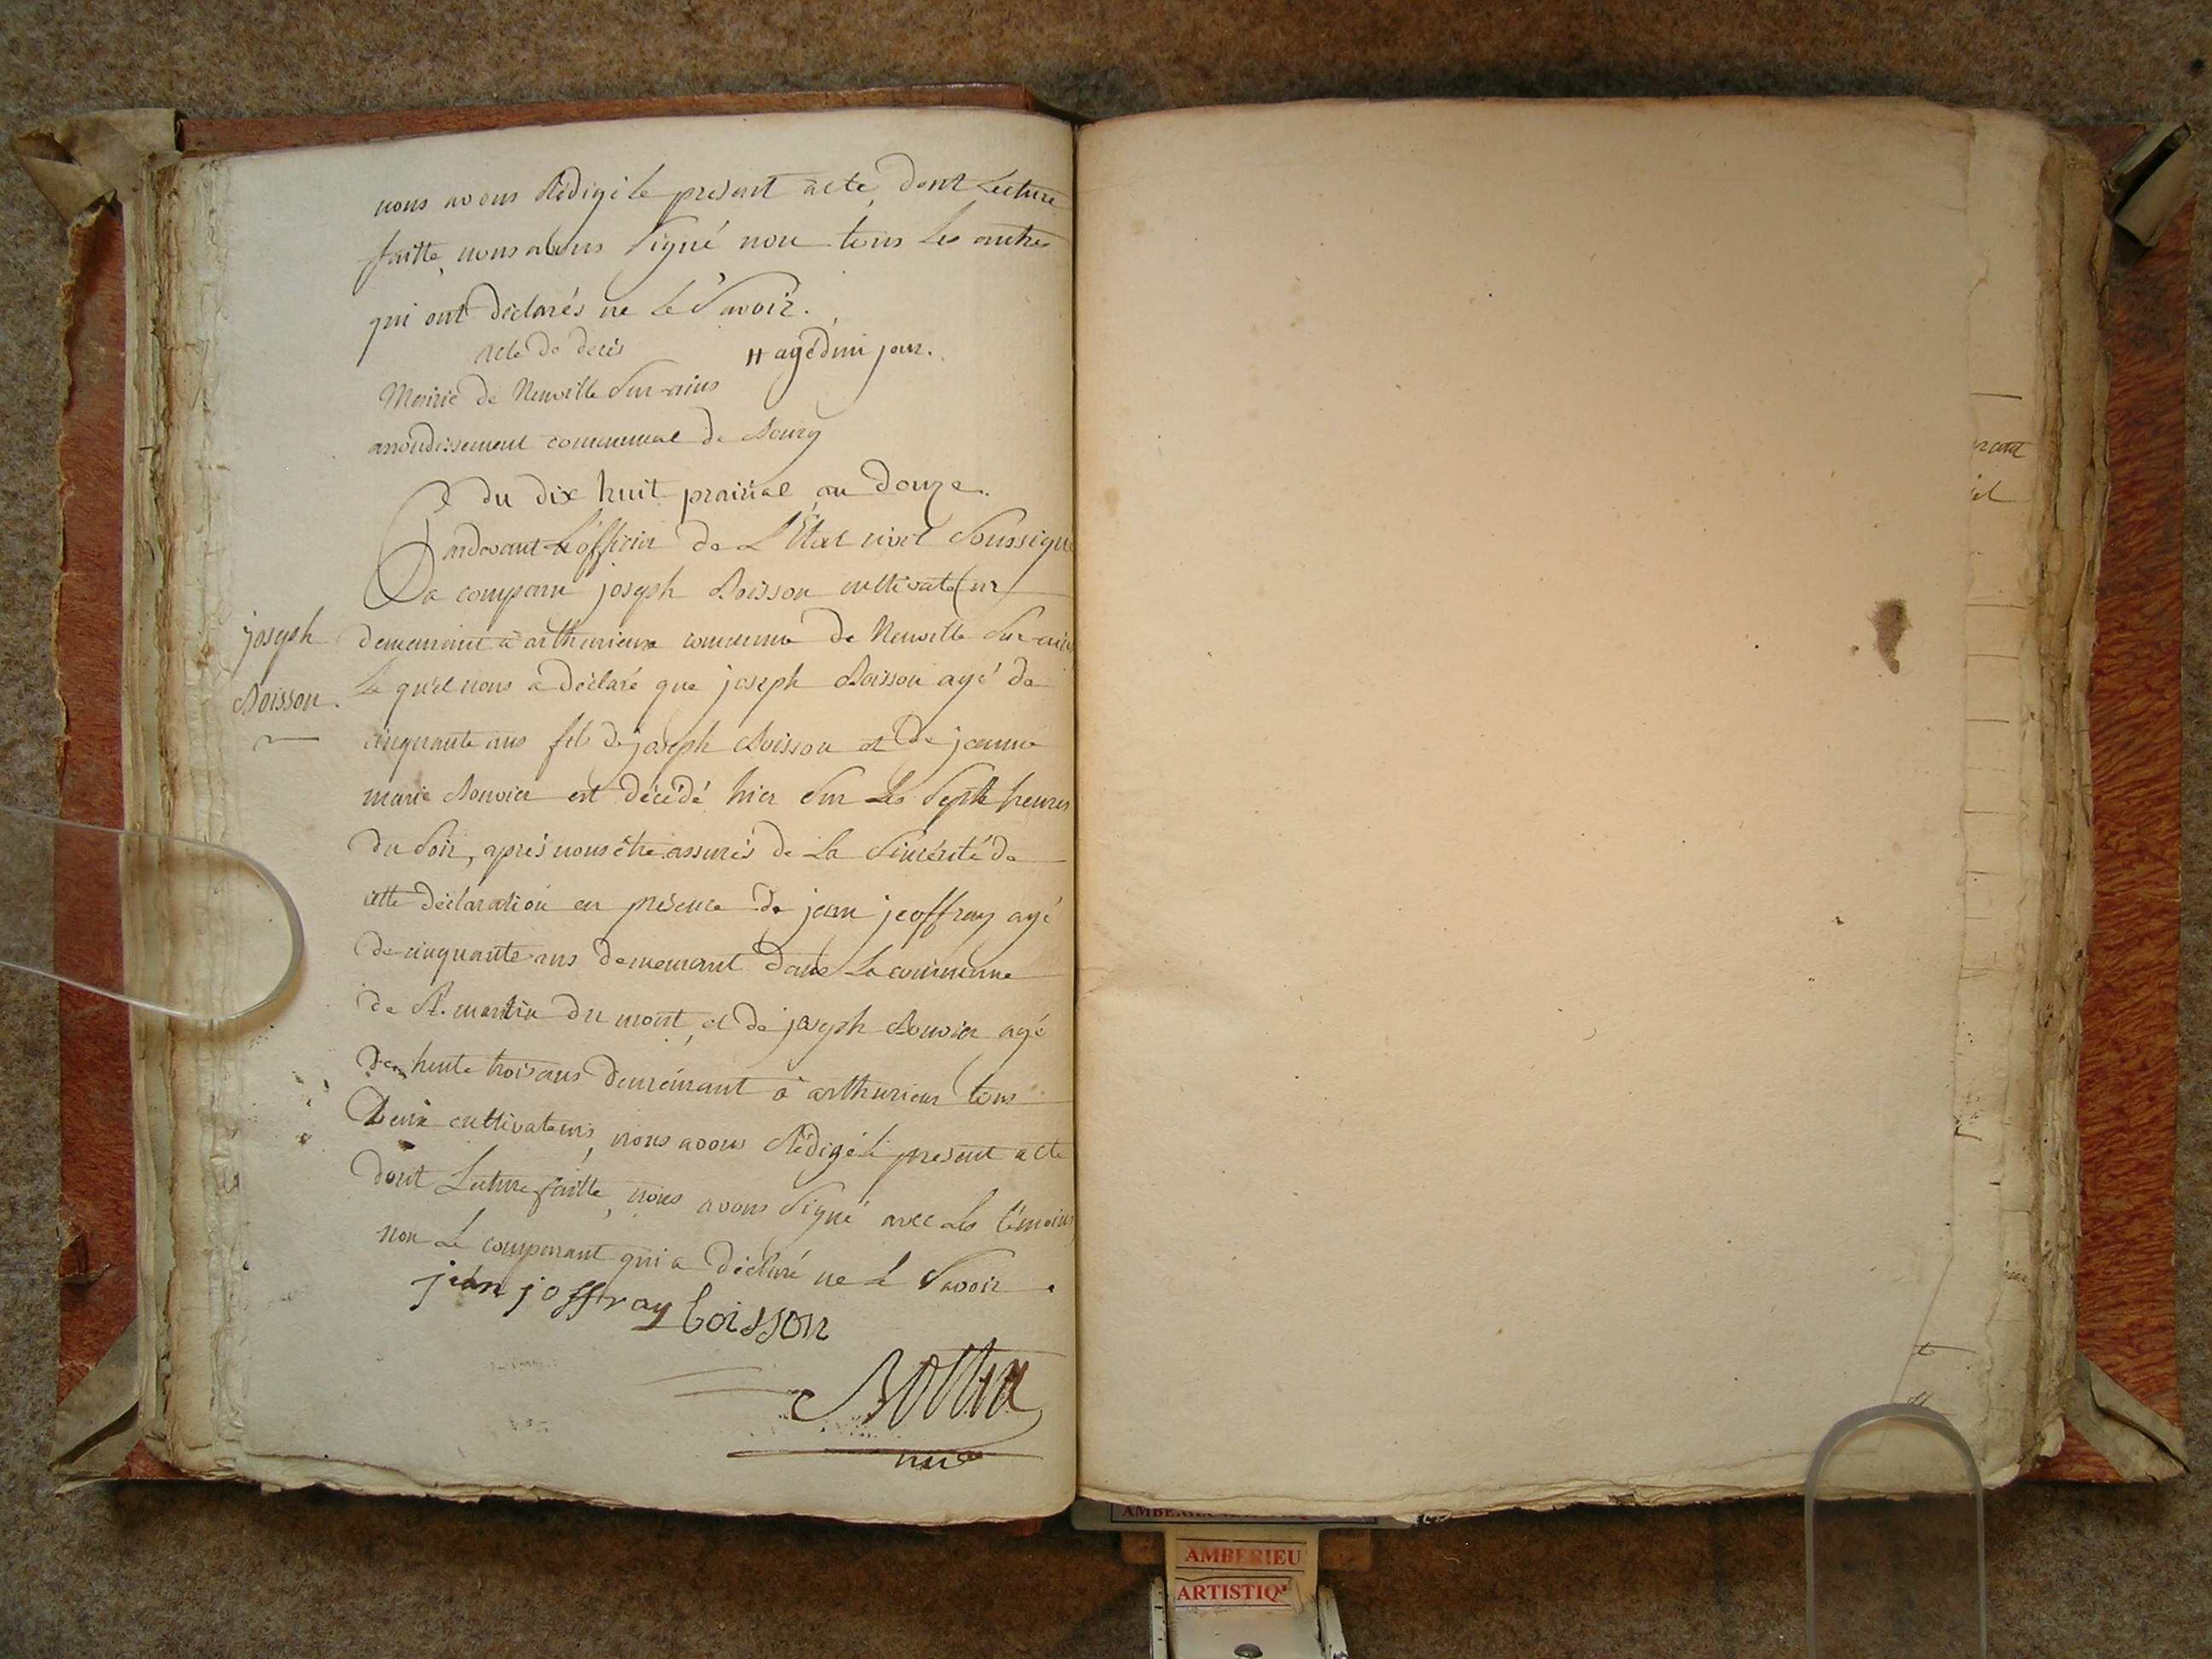 nous avons Rédigé le present acte, dont Lecture
faitte, nous avons Signé non tous les autres
qui ont déclarés ne le Savoir.
acte de decès
" agé d'un jour.
Mairie de Neuville Sur-ains
arrondissement communal de Bourg
du dix huit prairial an douze.
Pardevant L'officier de L'État civil Soussigné
a comparu joseph Boisson cultivateur
joseph
Boisson.
demeurant à arthurieux commune de Neuville Sur-ain
Le quel nous a déclaré que joseph Boisson agé de
cinquante ans fils de joseph Boisson et de jeanne
marie Bouvier est décédé hier Sur Les Septk heures
du Soir, aprés nous être assurés de La Sincérité de
cette déclaration en presence de jean jeoffray agé
de cinquante ans demeurant dans La commune
de St. martin du mont, et de joseph Bouvier agé
de trente trois ans demeurant à arthurieux tous
Deux cultivateurs, nous avons Rédigé le present acte
dont Lecture faitte, nous avons Signé avec Les témoins
non Le comparant qui a déclaré ne Le Savoir.
jean joffray boisson
AMBERIEU
ARTISTIQ